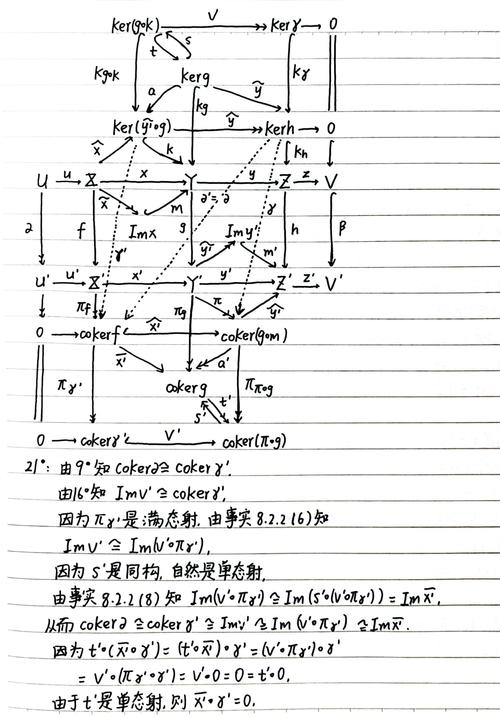 ker(g∘k) V kerγ 0
t s
k_{g∘k} kerg k_γ
a k_g ỹ
ker(ỹ'∘g) ŷ kerh 0
x̂ k k_h
U u X x Y y Z z V
x̃ m ∂'=∂
∂ f Imx g ỹ' Imy' γ h β
γ' m'
U' u' X' x' Y' y' Z' z' V'
π_f π_g π ŷ'
0 cokerf x̂' coker(g∘m)
x̄' a'
π_{γ'} cokerg π_{π∘g}
s' t'
0 cokerγ' V' coker(π∘g)
21°: 由9°知 coker∂≅cokerγ',
由16°知 Imv'≅cokerγ',
因为πγ'是满态射, 由事实8.2.2(6)知
Imv'≅Im(v'∘πγ'),
因为s'是同构, 自然是单态射,
由事实8.2.2(8)知 Im(v'∘πγ')≅Im(s'∘(v'∘πγ'))=Imx̄',
从而 coker∂≅cokerγ'≅Imv'≅Im(v'∘πγ')≅Imx̄'.
因为t'∘(x̄'∘γ')=(t'∘x̄')∘γ'=(v'∘πγ')∘γ'
=v'∘(πγ'∘γ')=v'∘0=0=t'∘0,
由于t'是单态射, 则x̄'∘γ'=0,